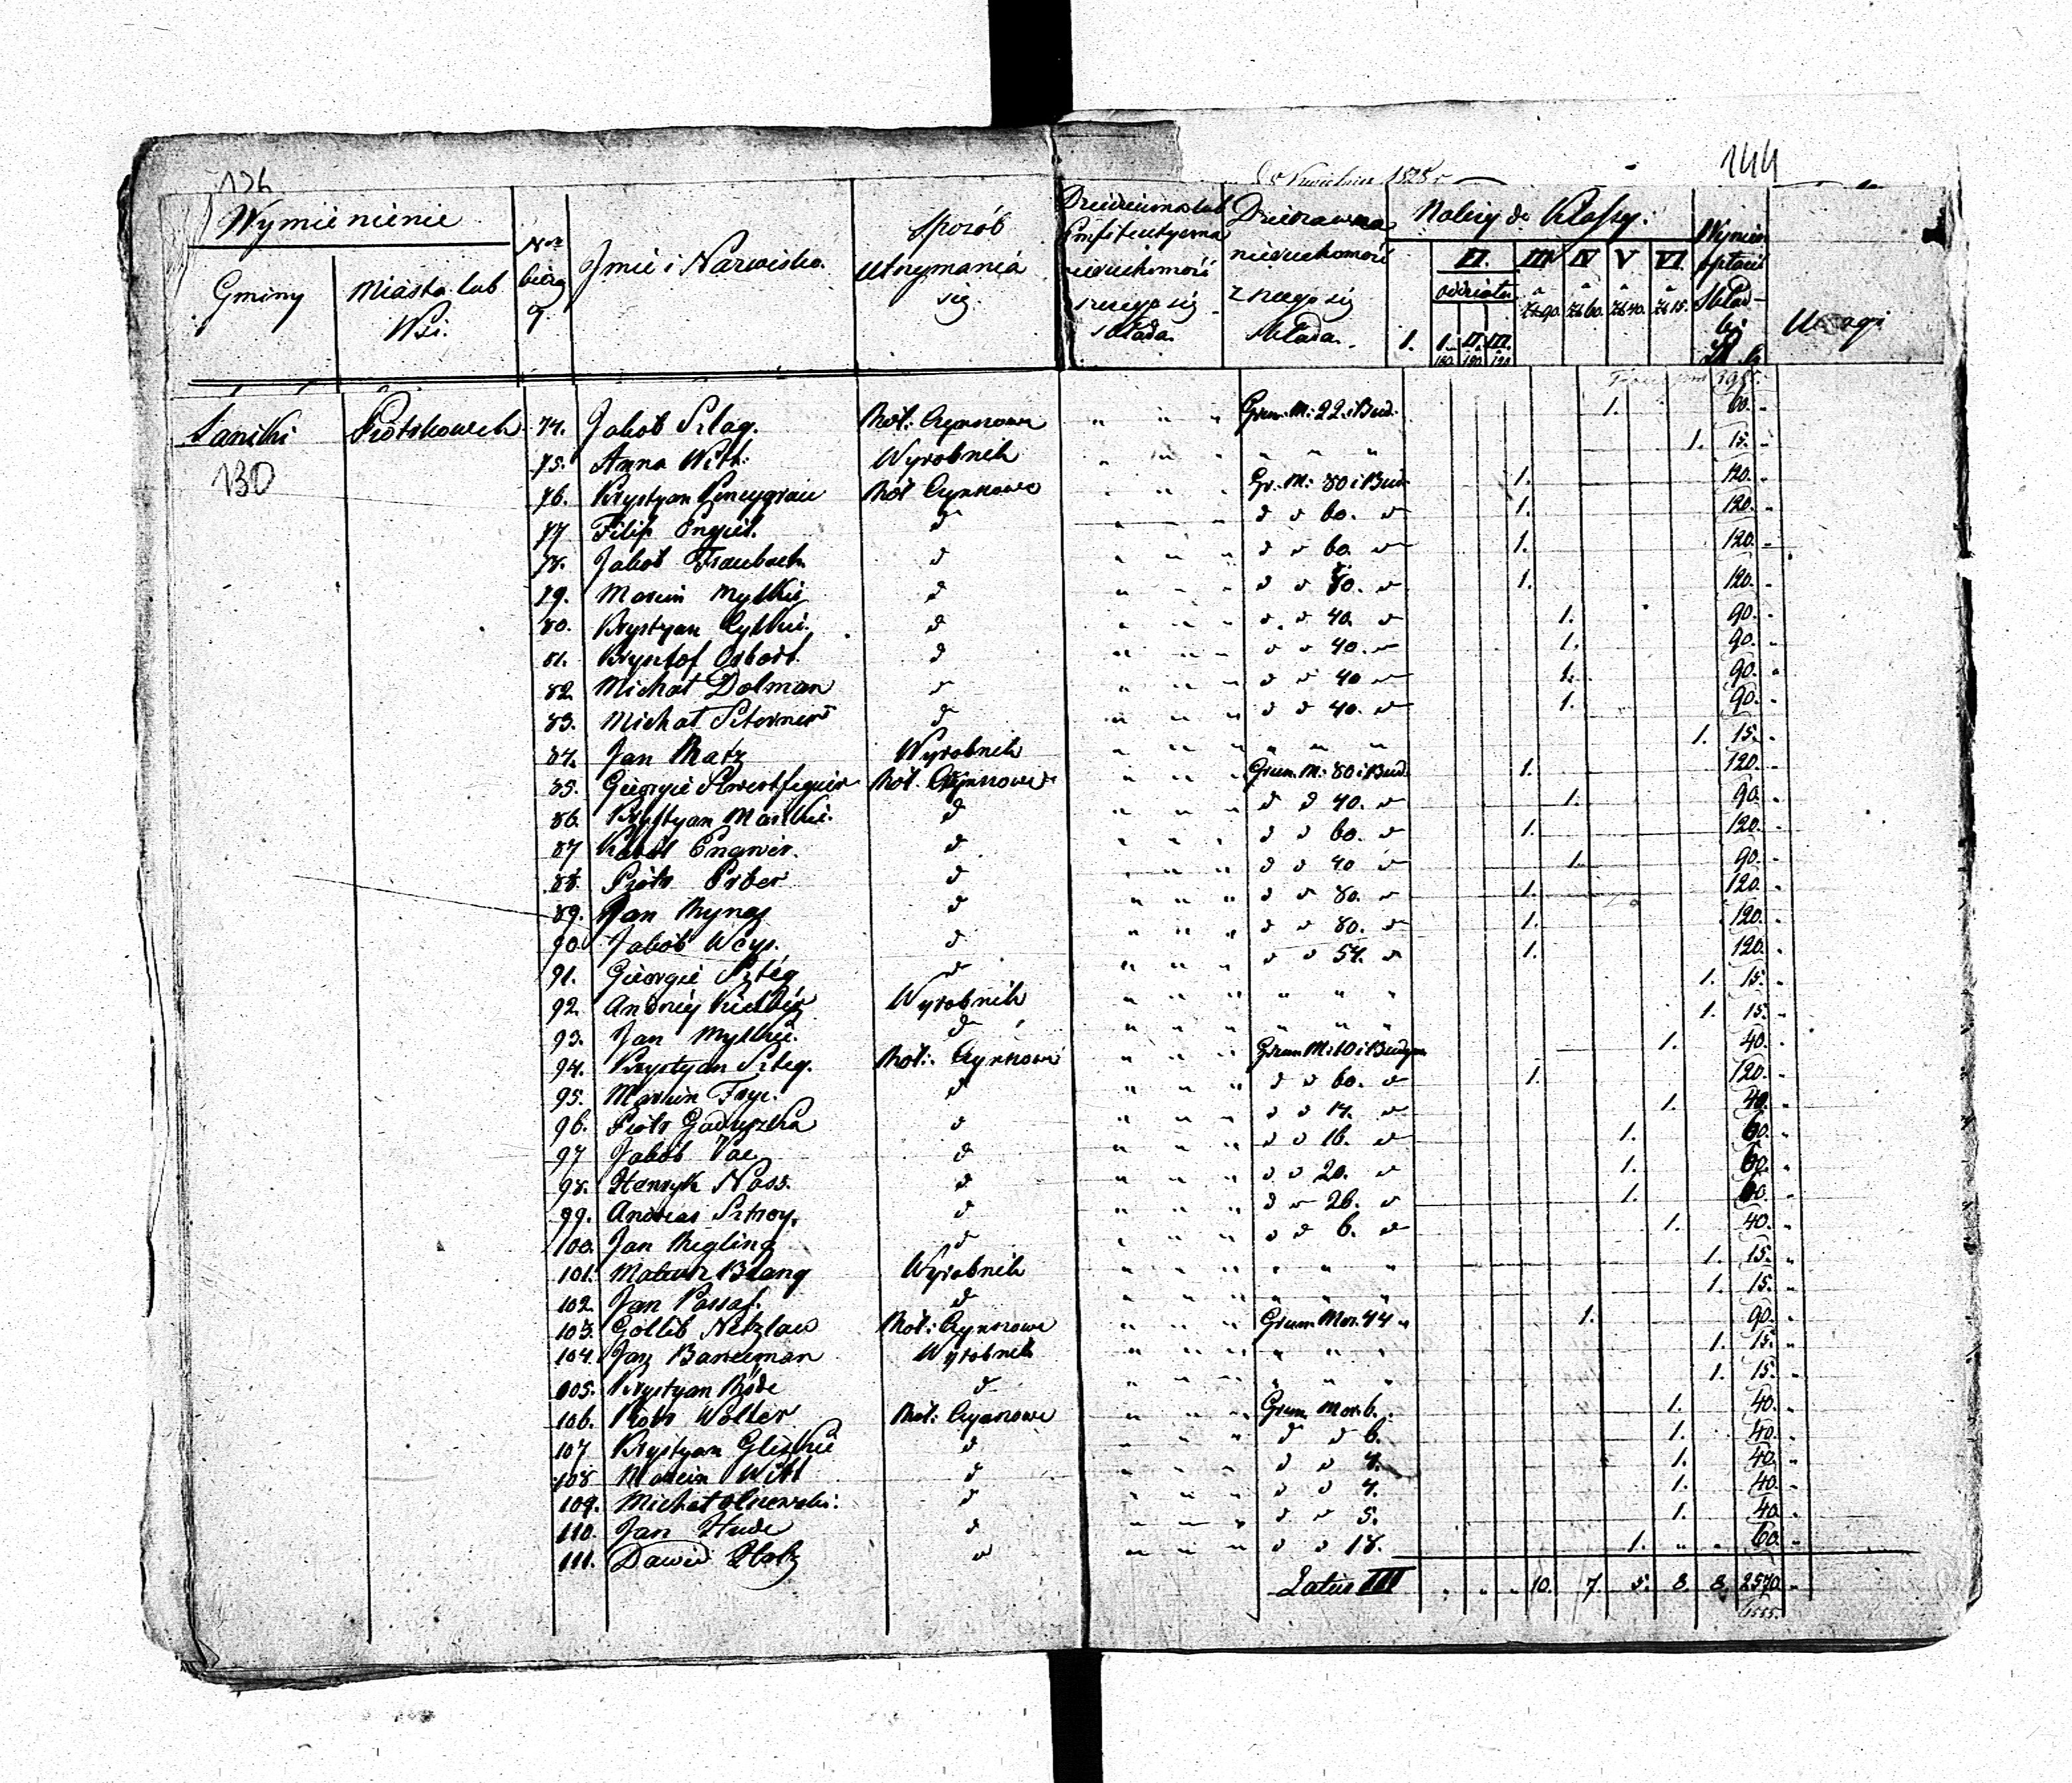 136
144
Kwietnia 1828 r
Wymienienie
Gminy
Miasta lub Wsi.
Nr bieżą
Jmie i Nazwisko.
Sposób utrzymania się.
Dziedziczna lub Emfiteutyczna nieruchomość z czego się składa.
Dzierzawna nieruchomość z czego się składa.
Należy do Klassy:
I. II. oddziału I. II. III. 180. 150. 120 III a Zł 90. IV a Zł 60. V a Zł 40. VI a Zł 15.
Uwagi
Saniki Piotrkowek 74. Jakob Szlag. Rol: Czynszowe " " " Grun: M: 22 i Bud. 1. 60. "
130
75. Anna Witt: Wyrobnik " " " " " " 1. 15. "
76. Krystyan Gr: M: 80 i Bud. Rol Czynszowe 1. 120. "
77 Filip Engiel. d " " " d d 60. d 1. 120. "
78. Jakob Fraubach d " " " d d 60. d 1. 120. "
79. Marcin Mytkie d " " " d d 80. d 1. 120. "
80. Krystyan Cytkie. d " " " d d 40. d 1. 90. "
81. Krysztof Osbart. d " " " d d 40. d 1. 90. "
82. Michał Dolman d " " " d d 40 d 1. 90. "
83. Michał d " " " d d 40. d 1. 90. "
84. Jan Matz Wyrobnik " " " " " " 1. 15. "
85. Gieorgie Rol. Czynszowe " " " Grun. M: 80 i Bud. 1. 120. "
86. Krystyan Mankie. d " " " d d 40. d 1. 90. "
87 Karol Engwer. d " " " d d 60. d 1. 120. "
88. Piotr Erber d " " " d d 40 d 1. 90. "
89. Jan Rynas d " " " d d 80. d 1. 120. "
90. Jakob Weys. d " " " d d 80. d 1. 120. "
91. Gieorgie Szteg d " " " d d 54. d 1. 120. "
92. Andrzej Wyrobnik " " " " " " 1. 15. "
93. Jan Mytkie. d " " " " " " 1. 15. "
94. Krystyan Szteg. Rol: Czynszowe " " " Grun M: 10 i Budyn 1. 40. "
95. Marcin Fryc. d " " " d d 60. d 1. 120. "
96. Piotr Gaduszka d " " " d d 14. d 1. 40. "
97 Jakób Vac d " " " d d 16. d 1. 60. "
98. Henryk Nass. d " " " d d 20. d 1. 60. "
99. Andreas Sztroy. d " " " d d 26. d 1. 60. "
100. Jan Regling d " " " d d 6. d 1. 40. "
101. Mateusz Blang Wyrobnik " " " " " " 1. 15. "
102. Jan Passaf. d " " " " " " 1. 15. "
103. Gottlib Netzlaw Rol: Czynszowe " " " Grun Mor. 44 " 1. 90. "
104. Jan Wyrobnik " " " " " " 1. 15. "
105. Krystyan Rode d " " " " " " 1. 15. "
106. Piotr Wolter Rol: Czynszowe " " " Grun. Mor. 6. 1. 40. "
107 Krystyan Gliszkie d " " " d d 6. 1. 40. "
108 Marcin Witt d " " " d d 4. 1. 40. "
109. Michał d " " " d d 4. 1. 40. "
110. Jan Hude d " " " d d 5. 1. 40. "
111. Dawid d " " " d d 18. 1. " " 60. "
Latus III " " " 10. 7. 5. 8. 8. 2570. "